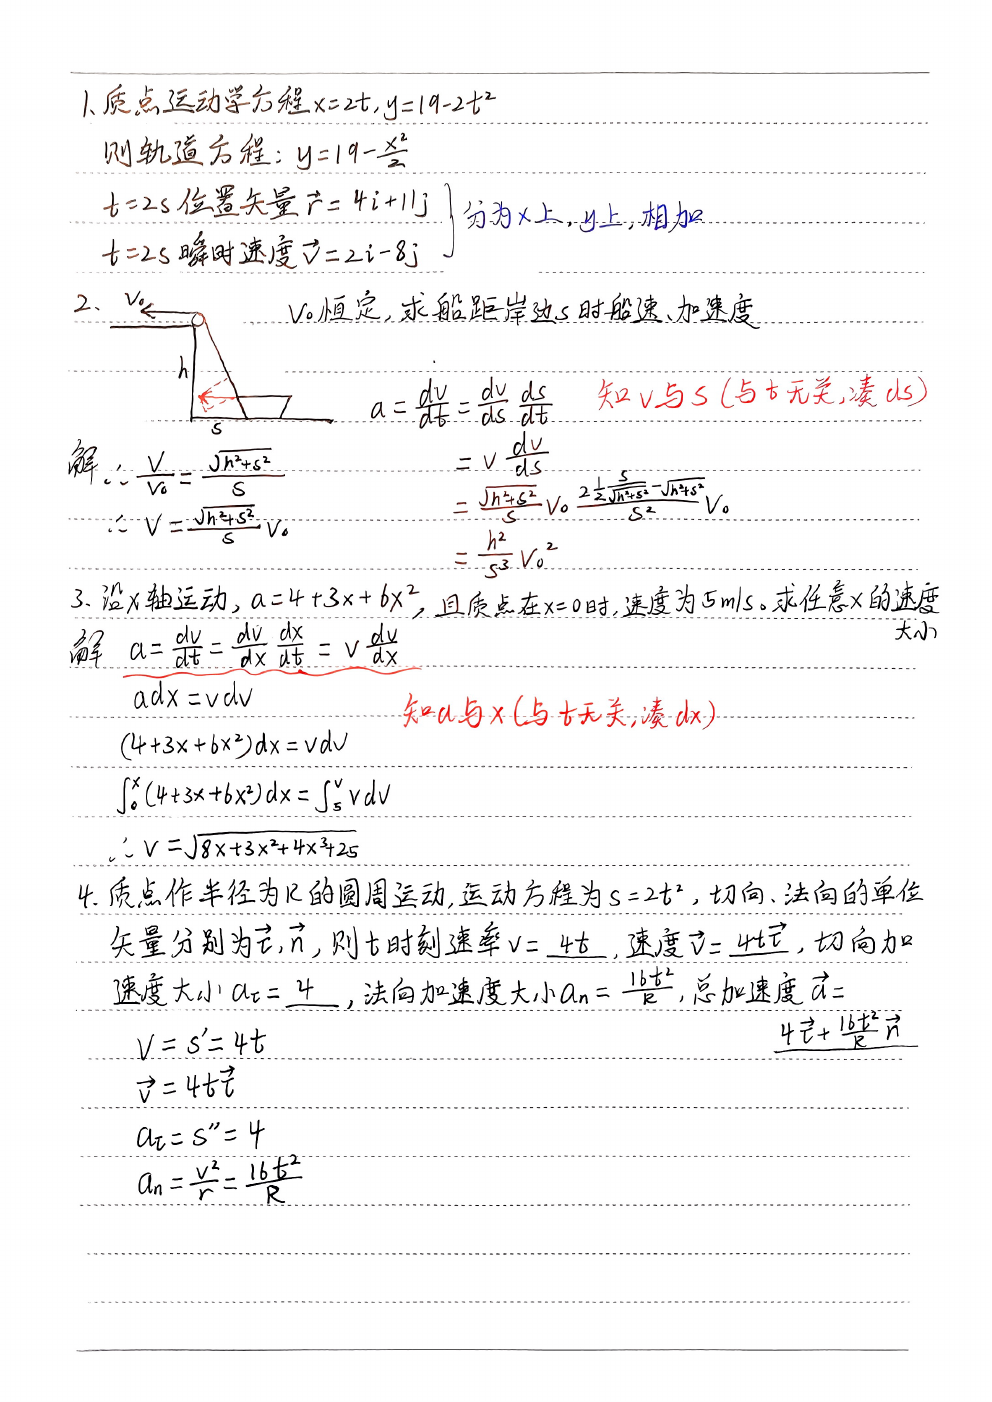 1、质点运动学方程x=2t,y=19-2t²
则轨道方程:y=19-x²/2
t=2s位置矢量r⃗=4i+11j
t=2s瞬时速度v⃗=2i-8j
}分为x上,y上,相加
2、
V₀
h
s
V₀恒定,求船距岸边s时船速、加速度
a=dv/dt=dv/ds ds/dt
知v与s(与t无关,凑ds)
=v dv/ds
=√(h²+s²)/s V₀ (2 1/2 s/√(h²+s²) -√(h²+s²))/s² V₀
=h²/s³ V₀²
解 ∵ V/V₀=√(h²+s²)/s
∴ V=√(h²+s²)/s V₀
3、沿x轴运动,a=4+3x+6x²,且质点在x=0时,速度为5m/s。求任意x的速度
大小
解 a=dv/dt=dv/dx dx/dt=v dv/dx
adx=vdv
知a与x(与t无关,凑dx)
(4+3x+6x²)dx=vdv
∫₀ˣ(4+3x+6x²)dx=∫₅ᵛvdv
∴v=√(8x+3x²+4x³+25)
4、质点作半径为R的圆周运动,运动方程为s=2t²,切向、法向的单位
矢量分别为τ⃗,n⃗,则t时刻速率v=4t,速度v⃗=4tτ⃗,切向加
速度大小aτ=4,法向加速度大小an=16t²/R,总加速度a⃗=
4τ⃗+16t²/R n⃗
V=s′=4t
v⃗=4tτ⃗
aτ=s″=4
an=v²/r=16t²/R